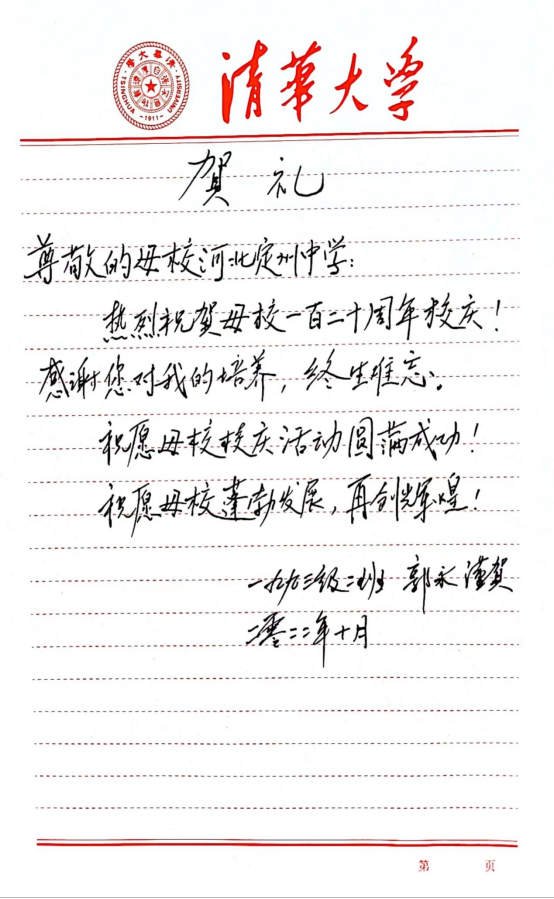 清華大學
TSINGHUA UNIVERSITY
自强不息
厚德載物
~1911~
清華大学
贺礼
尊敬的母校河北定州中学:
热烈祝贺母校一百二十周年校庆!
感谢您对我的培养,终生难忘。
祝愿母校校庆活动圆满成功!
祝愿母校蓬勃发展,再创辉煌!
一九九三级二班 郭永谨贺
二零二二年十月
第 页